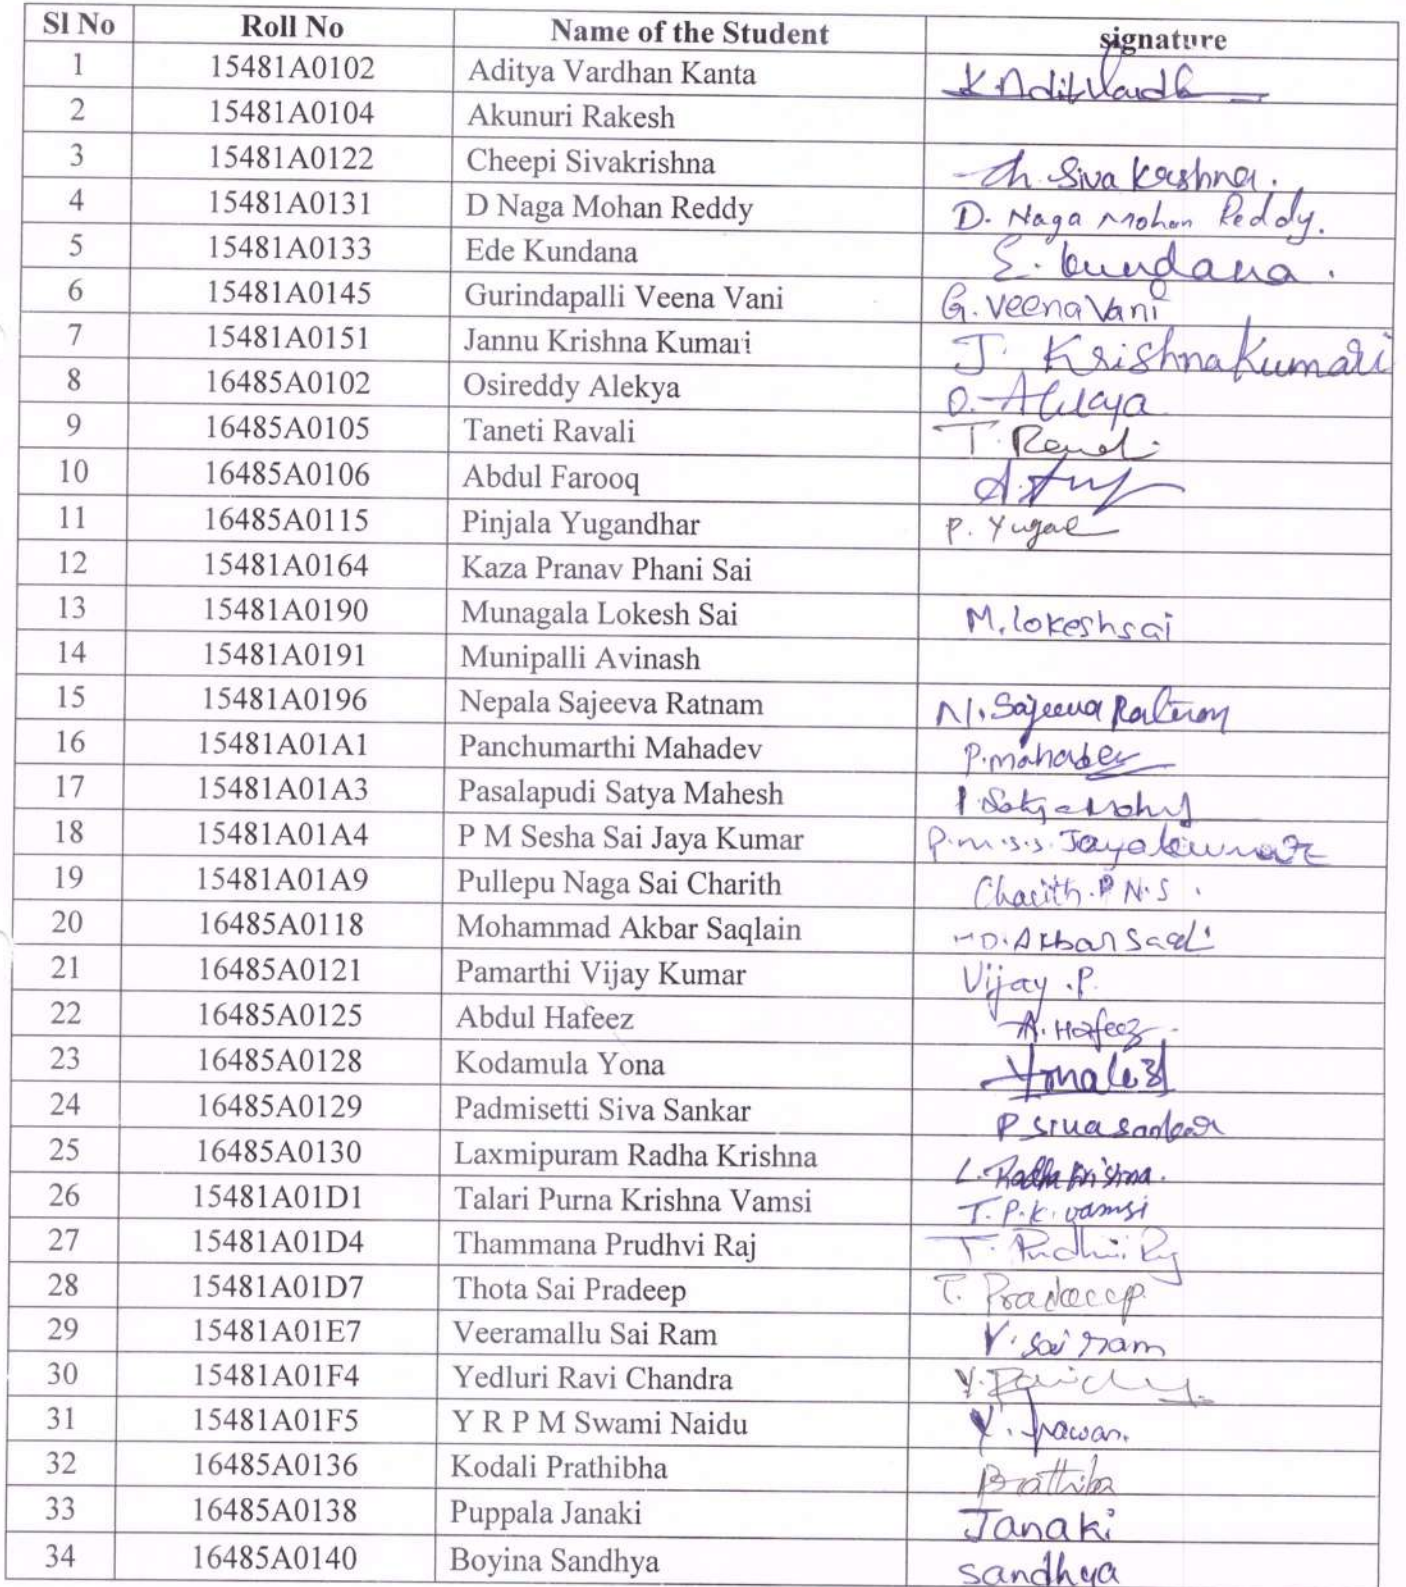 Sl No Roll No Name of the Student signature
1 15481A0102 Aditya Vardhan Kanta K.
2 15481A0104 Akunuri Rakesh
3 15481A0122 Cheepi Sivakrishna Ch. Siva Krishna.
4 15481A0131 D Naga Mohan Reddy D. Naga Mohan Reddy.
5 15481A0133 Ede Kundana E. kundana.
6 15481A0145 Gurindapalli Veena Vani G. Veena Vani
7 15481A0151 Jannu Krishna Kumari J. Krishna Kumari
8 16485A0102 Osireddy Alekya O. Alekya
9 16485A0105 Taneti Ravali T.
10 16485A0106 Abdul Farooq
11 16485A0115 Pinjala Yugandhar P.
12 15481A0164 Kaza Pranav Phani Sai
13 15481A0190 Munagala Lokesh Sai M. lokeshsai
14 15481A0191 Munipalli Avinash
15 15481A0196 Nepala Sajeeva Ratnam N. Sajeeva Ratnam
16 15481A01A1 Panchumarthi Mahadev P. mahadev
17 15481A01A3 Pasalapudi Satya Mahesh
18 15481A01A4 P M Sesha Sai Jaya Kumar P.m.s.s. Jayakumar
19 15481A01A9 Pullepu Naga Sai Charith Charith.P N.S.
20 16485A0118 Mohammad Akbar Saqlain MD. Akbar
21 16485A0121 Pamarthi Vijay Kumar Vijay .P.
22 16485A0125 Abdul Hafeez A. Hafeez
23 16485A0128 Kodamula Yona
24 16485A0129 Padmisetti Siva Sankar P siva sankar
25 16485A0130 Laxmipuram Radha Krishna L. Radha Krishna.
26 15481A01D1 Talari Purna Krishna Vamsi T. P. K. vamsi
27 15481A01D4 Thammana Prudhvi Raj T. Prudhvi Raj
28 15481A01D7 Thota Sai Pradeep T. Pradeep
29 15481A01E7 Veeramallu Sai Ram V. sai ram
30 15481A01F4 Yedluri Ravi Chandra Y.
31 15481A01F5 Y R P M Swami Naidu Y. Pawan.
32 16485A0136 Kodali Prathibha Prathiba
33 16485A0138 Puppala Janaki Janaki
34 16485A0140 Boyina Sandhya sandhya